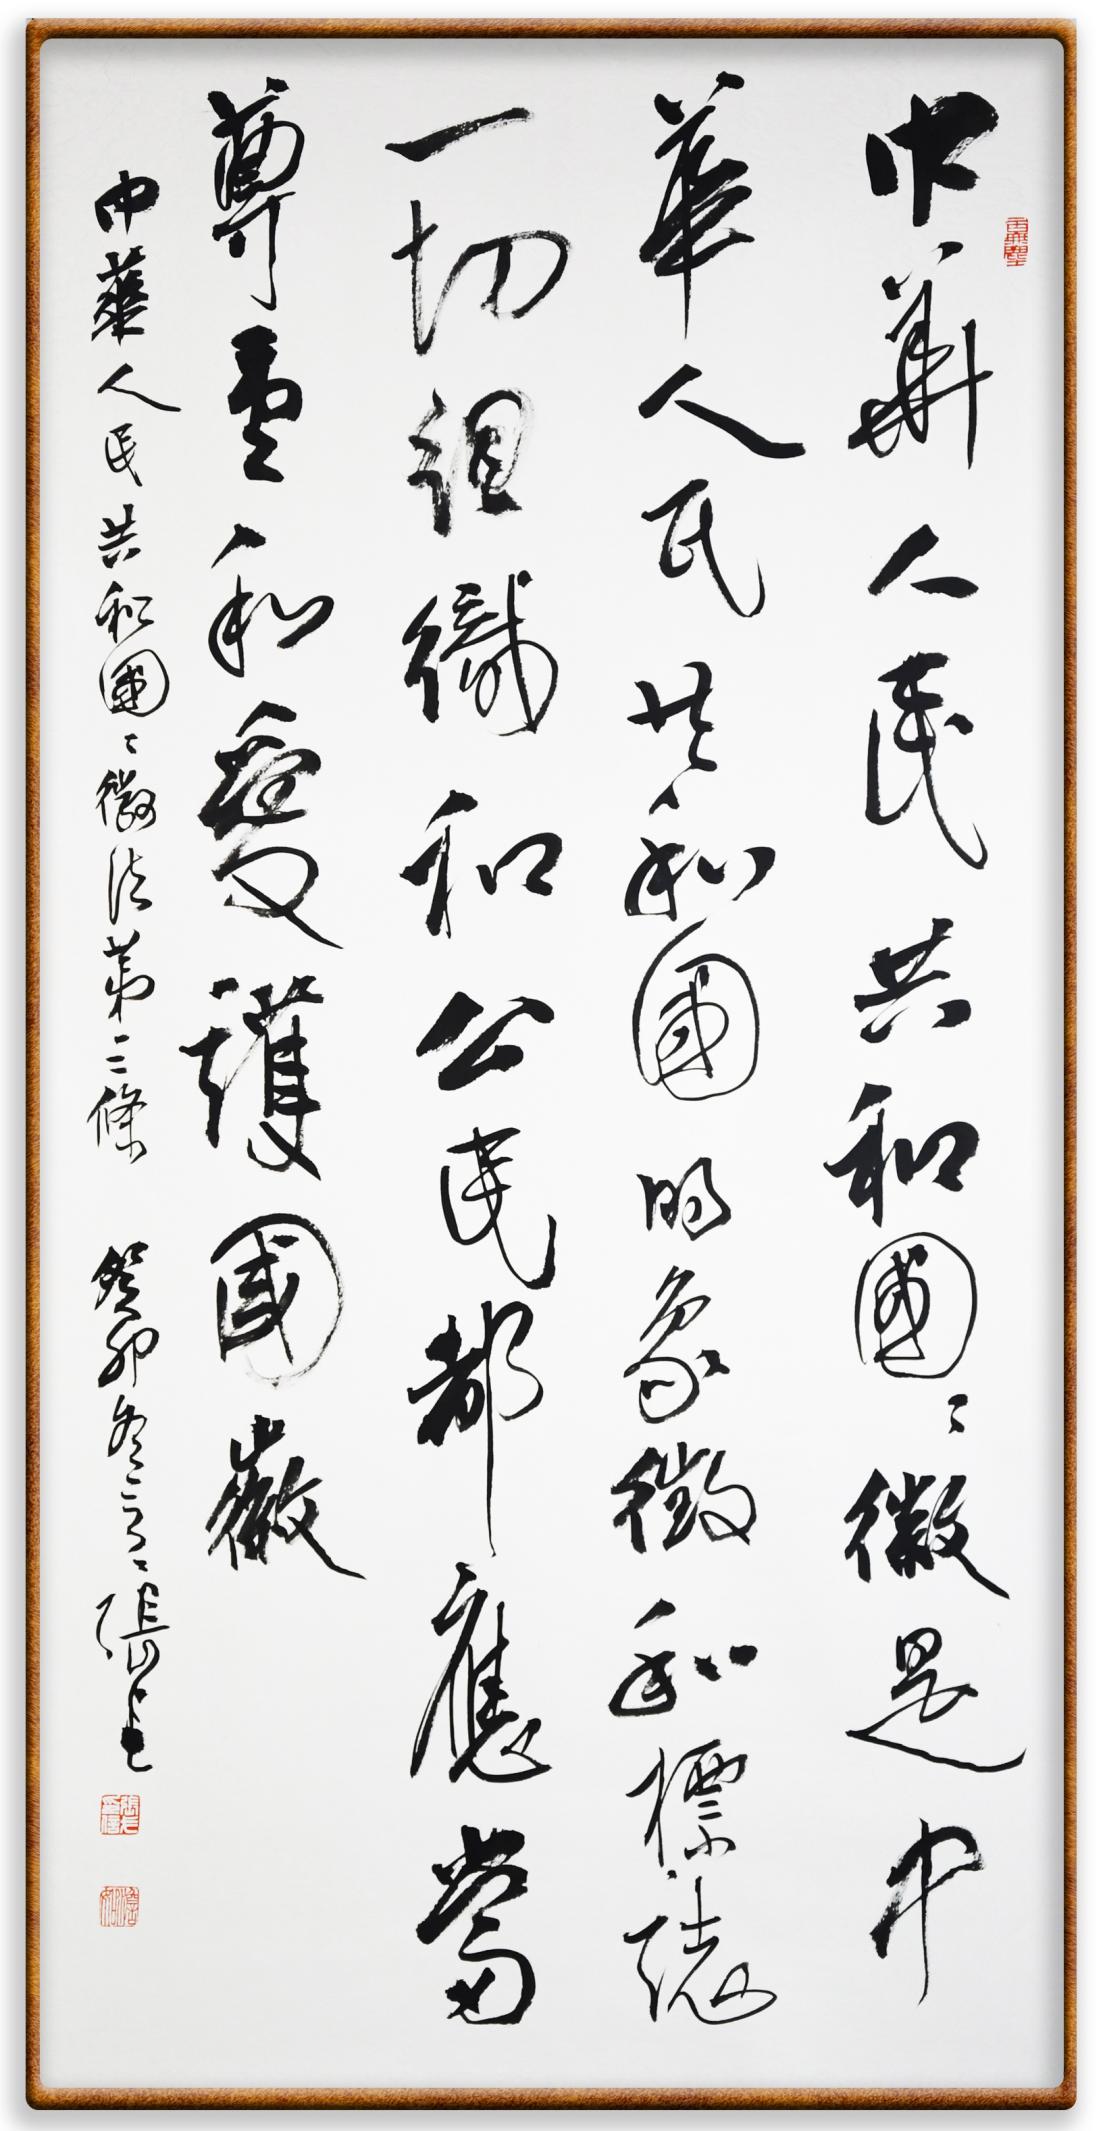 中華人民共和國〻徽是中
華人民共和國的象徵和標誌
一切組織和公民都應當
尊重和愛護國徽
中華人民共和國〻徽法第三條 癸卯冬 張